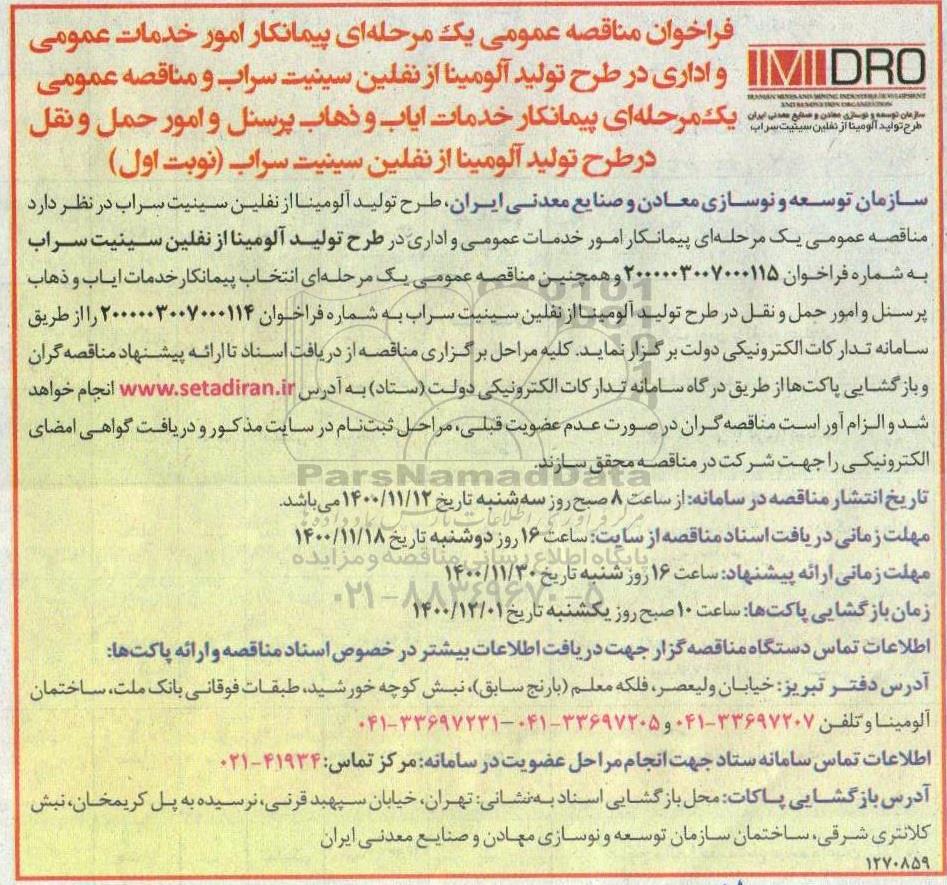 فراخوان مناقصه عمومی یک مرحله‌ای پیمانکار امور خدمات عمومی
و اداری در طرح تولید آلومینا از نفلین سینیت سراب و مناقصه عمومی
یک‌مرحله‌ای پیمانکار خدمات ایاب و ذهاب پرسنل و امور حمل و نقل
درطرح تولید آلومینا از نفلین سینیت سراب (نوبت اول)
IMIDRO
IRANIAN MINES AND MINING INDUSTRIES DEVELOPMENT
AND RENOVATION ORGANIZATION
سازمان توسعه و نوسازی معادن و صنایع معدنی ایران
طرح تولید آلومینا از نفلین سینیت سراب
سازمان توسعه و نوسازی معادن و صنایع معدنی ایران، طرح تولید آلومینا از نفلین سینیت سراب در نظر دارد
مناقصه عمومی یک مرحله‌ای پیمانکار امور خدمات عمومی و اداری در طرح تولید آلومینا از نفلین سینیت سراب
به شماره فراخوان ۲۰۰۰۰۰۳۰۰۷۰۰۰۱۱۵ و همچنین مناقصه عمومی یک مرحله‌ای انتخاب پیمانکار خدمات ایاب و ذهاب
پرسنل و امور حمل و نقل در طرح تولید آلومینا از نفلین سینیت سراب به شماره فراخوان ۲۰۰۰۰۰۳۰۰۷۰۰۰۱۱۴ را از طریق
سامانه تدارکات الکترونیکی دولت برگزار نماید. کلیه مراحل برگزاری مناقصه از دریافت اسناد تا ارائه پیشنهاد مناقصه‌گران
و بازگشایی پاکت‌ها از طریق درگاه سامانه تدارکات الکترونیکی دولت (ستاد) به آدرس www.setadiran.ir انجام خواهد
شد و الزام آور است مناقصه‌گران در صورت عدم عضویت قبلی، مراحل ثبت‌نام در سایت مذکور و دریافت گواهی امضای
الکترونیکی را جهت شرکت در مناقصه محقق سازند.
تاریخ انتشار مناقصه در سامانه: از ساعت ۸ صبح روز سه‌شنبه تاریخ ۱۴۰۰/۱۱/۱۲ می‌باشد.
مهلت زمانی دریافت اسناد مناقصه از سایت: ساعت ۱۶ روز دوشنبه تاریخ ۱۴۰۰/۱۱/۱۸
مهلت زمانی ارائه پیشنهاد: ساعت ۱۶ روز شنبه تاریخ ۱۴۰۰/۱۱/۳۰
زمان بازگشایی پاکت‌ها: ساعت ۱۰ صبح روز یکشنبه تاریخ ۱۴۰۰/۱۲/۰۱
اطلاعات تماس دستگاه مناقصه گزار جهت دریافت اطلاعات بیشتر در خصوص اسناد مناقصه و ارائه پاکت‌ها:
آدرس دفتر تبریز: خیابان ولیعصر، فلکه معلم (بارنج سابق)، نبش کوچه خورشید، طبقات فوقانی بانک ملت، ساختمان
آلومینا و تلفن ۳۳۶۹۷۲۰۷-۰۴۱ و ۳۳۶۹۷۲۰۵-۰۴۱ – ۳۳۶۹۷۲۳۱-۰۴۱
اطلاعات تماس سامانه ستاد جهت انجام مراحل عضویت در سامانه: مرکز تماس: ۴۱۹۳۴-۰۲۱
آدرس بازگشایی پاکات: محل بازگشایی اسناد به‌نشانی: تهران، خیابان سپهبد قرنی، نرسیده به پل کریمخان، نبش
کلانتری شرقی، ساختمان سازمان توسعه و نوسازی معادن و صنایع معدنی ایران
۱۲۷۰۸۵۹
ParsNamadData
مرکز فرآوری اطلاعات پارس نماد داده ها
پایگاه اطلاع رسانی مناقصه و مزایده
۰۲۱-۸۸۳۴۹۶۷۰-۵